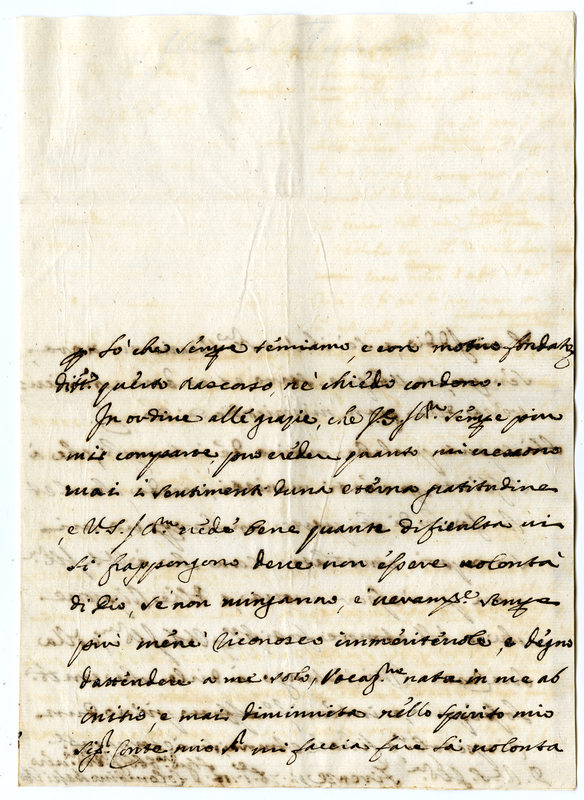 so che sempre temiamo, e con motivo fondato
questo rascorso, ne chiedo condono.
In ordine alle grazie, che V.S. Ill.ma sempre piu
mi comparte, puo credere quanto mi crescono
mai i sentimenti d'una eterna gratitudine
e V.S. Ill.ma vede bene quante dificulta vi
si frappongono deve non essere volontà
di Dio, se non m'inganno, e veram.te sempre
più mene riconosco immeritevole, e degno
d'attendere a me solo, Vocaz.ne nata in me ab
initio, e mai diminuita nello spirito mio
Sig.r Conte mio mi faccia fare la volonta